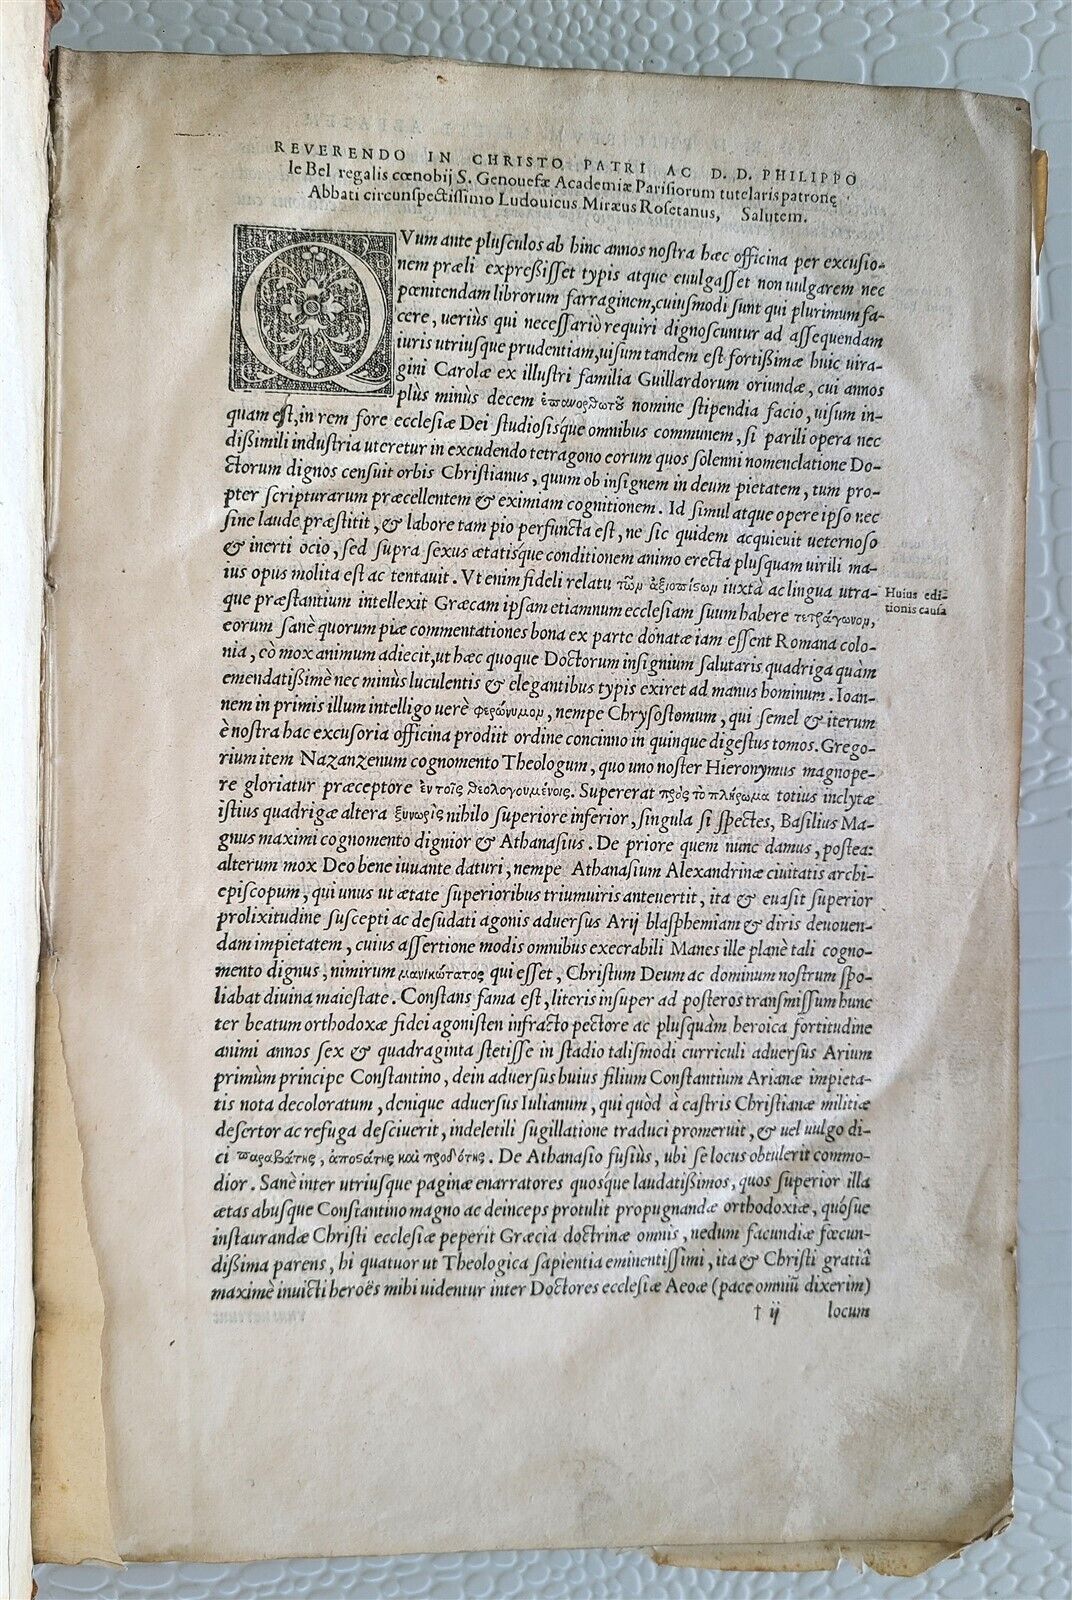 REVERENDO IN CHRISTO PATRI AC D. D. PHILIPPO
le Bel regalis cœnobij S. Genouefæ Academiæ Parisiorum tutelaris patronę
Abbati circunspectissimo Ludouicus Miræus Rosetanus, Salutem.
QVum ante plusculos ab hinc annos nostra hæc officina per excusio-
nem præli expreßisset typis atque euulgasset non uulgarem nec
pœnitendam librorum farraginem, cuiusmodi sunt qui plurimum fa-
cere, ueriùs qui necessariò requiri dignoscuntur ad assequendam
iuris utriusque prudentiam, uisum tandem est fortißimæ huic uira-
gini Carolæ ex illustri familia Guillardorum oriundæ, cui annos
plùs minùs decem ἐπανορθωτοῦ nomine stipendia facio, uisum in-
quam est, in rem fore ecclesiæ Dei studiosisque omnibus communem, si parili opera nec
dißimili industria uteretur in excudendo tetragono eorum quos solenni nomenclatione Do-
ctorum dignos censuit orbis Christianus, quum ob insignem in deum pietatem, tum pro-
pter scripturarum præcellentem & eximiam cognitionem. Id simul atque opere ipso nec
sine laude præstitit, & labore tam pio perfuncta est, ne sic quidem acquieuit ueternoso
& inerti ocio, sed supra sexus ætatisque conditionem animo erecta plusquam uirili ma-
ius opus molita est ac tentauit. Vt enim fideli relatu τῶν ἀξιοπίστων iuxtà ac lingua utra-
que præstantium intellexit Græcam ipsam etiamnum ecclesiam suum habere τετράγωνον,
Huius edi-
tionis causa
eorum sanè quorum piæ commentationes bona ex parte donatæ iam essent Romana colo-
nia, eò mox animum adiecit, ut hæc quoque Doctorum insignium salutaris quadriga quàm
emendatißimè nec minùs luculentis & elegantibus typis exiret ad manus hominum. Ioan-
nem in primis illum intelligo uerè φερώνυμον, nempe Chrysostomum, qui semel & iterum
è nostra hac excusoria officina prodiit ordine concinno in quinque digestus tomos. Grego-
rium item Nazanzenum cognomento Theologum, quo uno noster Hieronymus magnope-
re gloriatur præceptore ἐν τοῖς θεολογουμένοις. Supererat πρὸς τὸ πλήρωμα totius inclytæ
istius quadrigæ altera ξυνωρὶς nihilo superiore inferior, singula si spectes, Basilius Ma-
gnus maximi cognomento dignior & Athanasius. De priore quem nunc damus, postea:
alterum mox Deo bene iuuante daturi, nempe Athanasium Alexandrinæ ciuitatis archi-
episcopum, qui unus ut ætate superioribus triumuiris anteuertit, ita & euasit superior
prolixitudine suscepti ac desudati agonis aduersus Arij blasphemiam & diris deuouen-
dam impietatem, cuius assertione modis omnibus execrabili Manes ille planè tali cogno-
mento dignus, nimirum μανικώτατος qui esset, Christum Deum ac dominum nostrum spo-
liabat diuina maiestate. Constans fama est, literis insuper ad posteros transmissum hunc
ter beatum orthodoxæ fidei agonisten infracto pectore ac plusquàm heroica fortitudine
animi annos sex & quadraginta stetisse in stadio talismodi curriculi aduersus Arium
primùm principe Constantino, dein aduersus huius filium Constantium Arianæ impieta-
tis nota decoloratum, denique aduersus Iulianum, qui quòd à castris Christianæ militiæ
desertor ac refuga desciuerit, indeletili sugillatione traduci promeruit, & uel uulgo di-
ci παραβάτης, ἀποστάτης καὶ προδότης. De Athanasio fusiùs, ubi se locus obtulerit commo-
dior. Sanè inter utriusque paginæ enarratores quosque laudatißimos, quos superior illa
ætas abusque Constantino magno ac deinceps protulit propugnandæ orthodoxiæ, quósue
instaurandæ Christi ecclesiæ peperit Græcia doctrinæ omnis, nedum facundiæ fœcun-
dißima parens, hi quatuor ut Theologica sapientia eminentissimi, ita & Christi gratiâ
maximè inuicti heroës mihi uidentur inter Doctores ecclesiæ Aeoæ (pace omniũ dixerim)
† ij locum